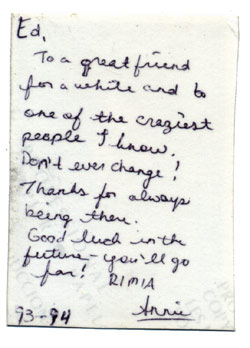 Ed,
To a great friend
for a white and to
one of the craziest
people I know.
Don't ever change!
Thanks for always
being there.
Good luck in the
future - you'll go
far! RIMIA
Annie
93-94